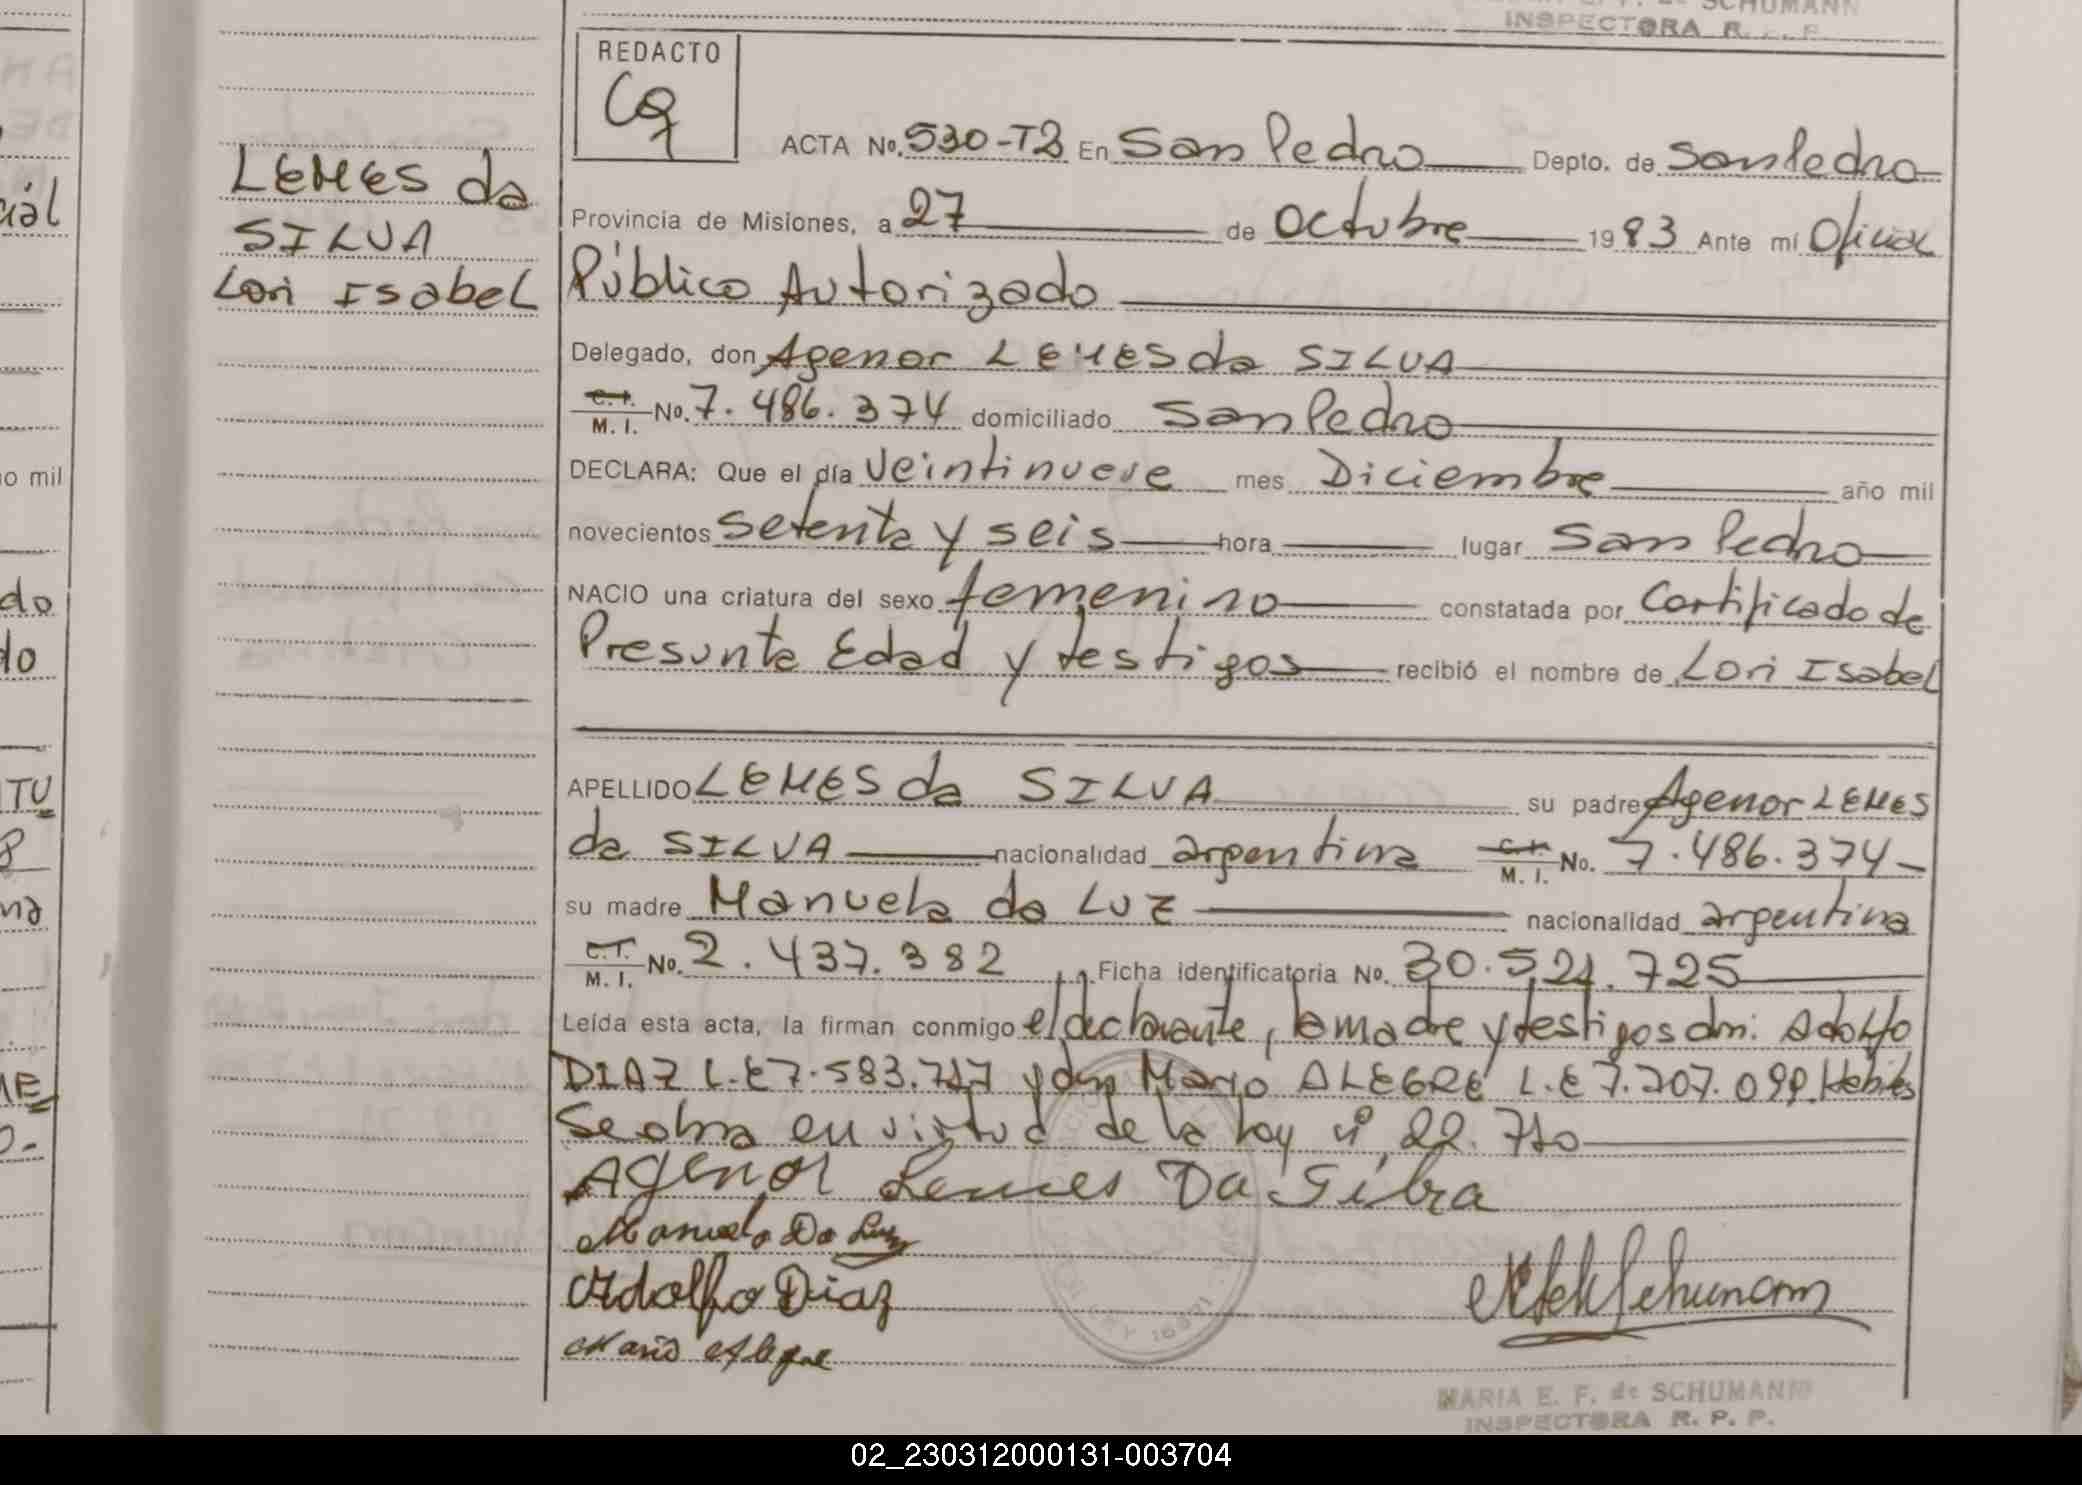 SCHUMANN
INSPECTORA R. P. P.
REDACTO
LEMES da
SILVA
Lori Isabel
ACTA No. 530-T2 En San Pedro Depto. de San Pedro
Provincia de Misiones, a 27 de Octubre 1983 Ante mí Oficial
Público Autorizado
Delegado, don Agenor LEMES da SILVA
C. I. M. I. No. 7.486.374 domiciliado San Pedro
DECLARA: Que el día Veintinueve mes Diciembre año mil
novecientos setenta y seis hora lugar San Pedro
NACIO una criatura del sexo femenino constatada por Certificado de
Presunta Edad y testigos recibió el nombre de Lori Isabel
APELLIDO LEMES da SILVA su padre Agenor LEMES
da SILVA nacionalidad argentina C. I. M. I. No. 7.486.374
su madre Manuela da LUZ nacionalidad argentina
C. I. M. I. No. 2.437.382 Ficha identificatoria No. 30.521.725
Leída esta acta, la firman conmigo el declarante, la madre y testigos don: Adolfo
DIAZ L.E 7.583.717 y don Mario ALEGRE L.E 7.707.099
Se obra en virtud de la Ley nº 22.710
Agenor Lemes Da Silva
Manuela Da Luz
Adolfo Diaz
Mario Alegre
MARIA E. F. de SCHUMANN
INSPECTORA R. P. P.
02_230312000131-003704